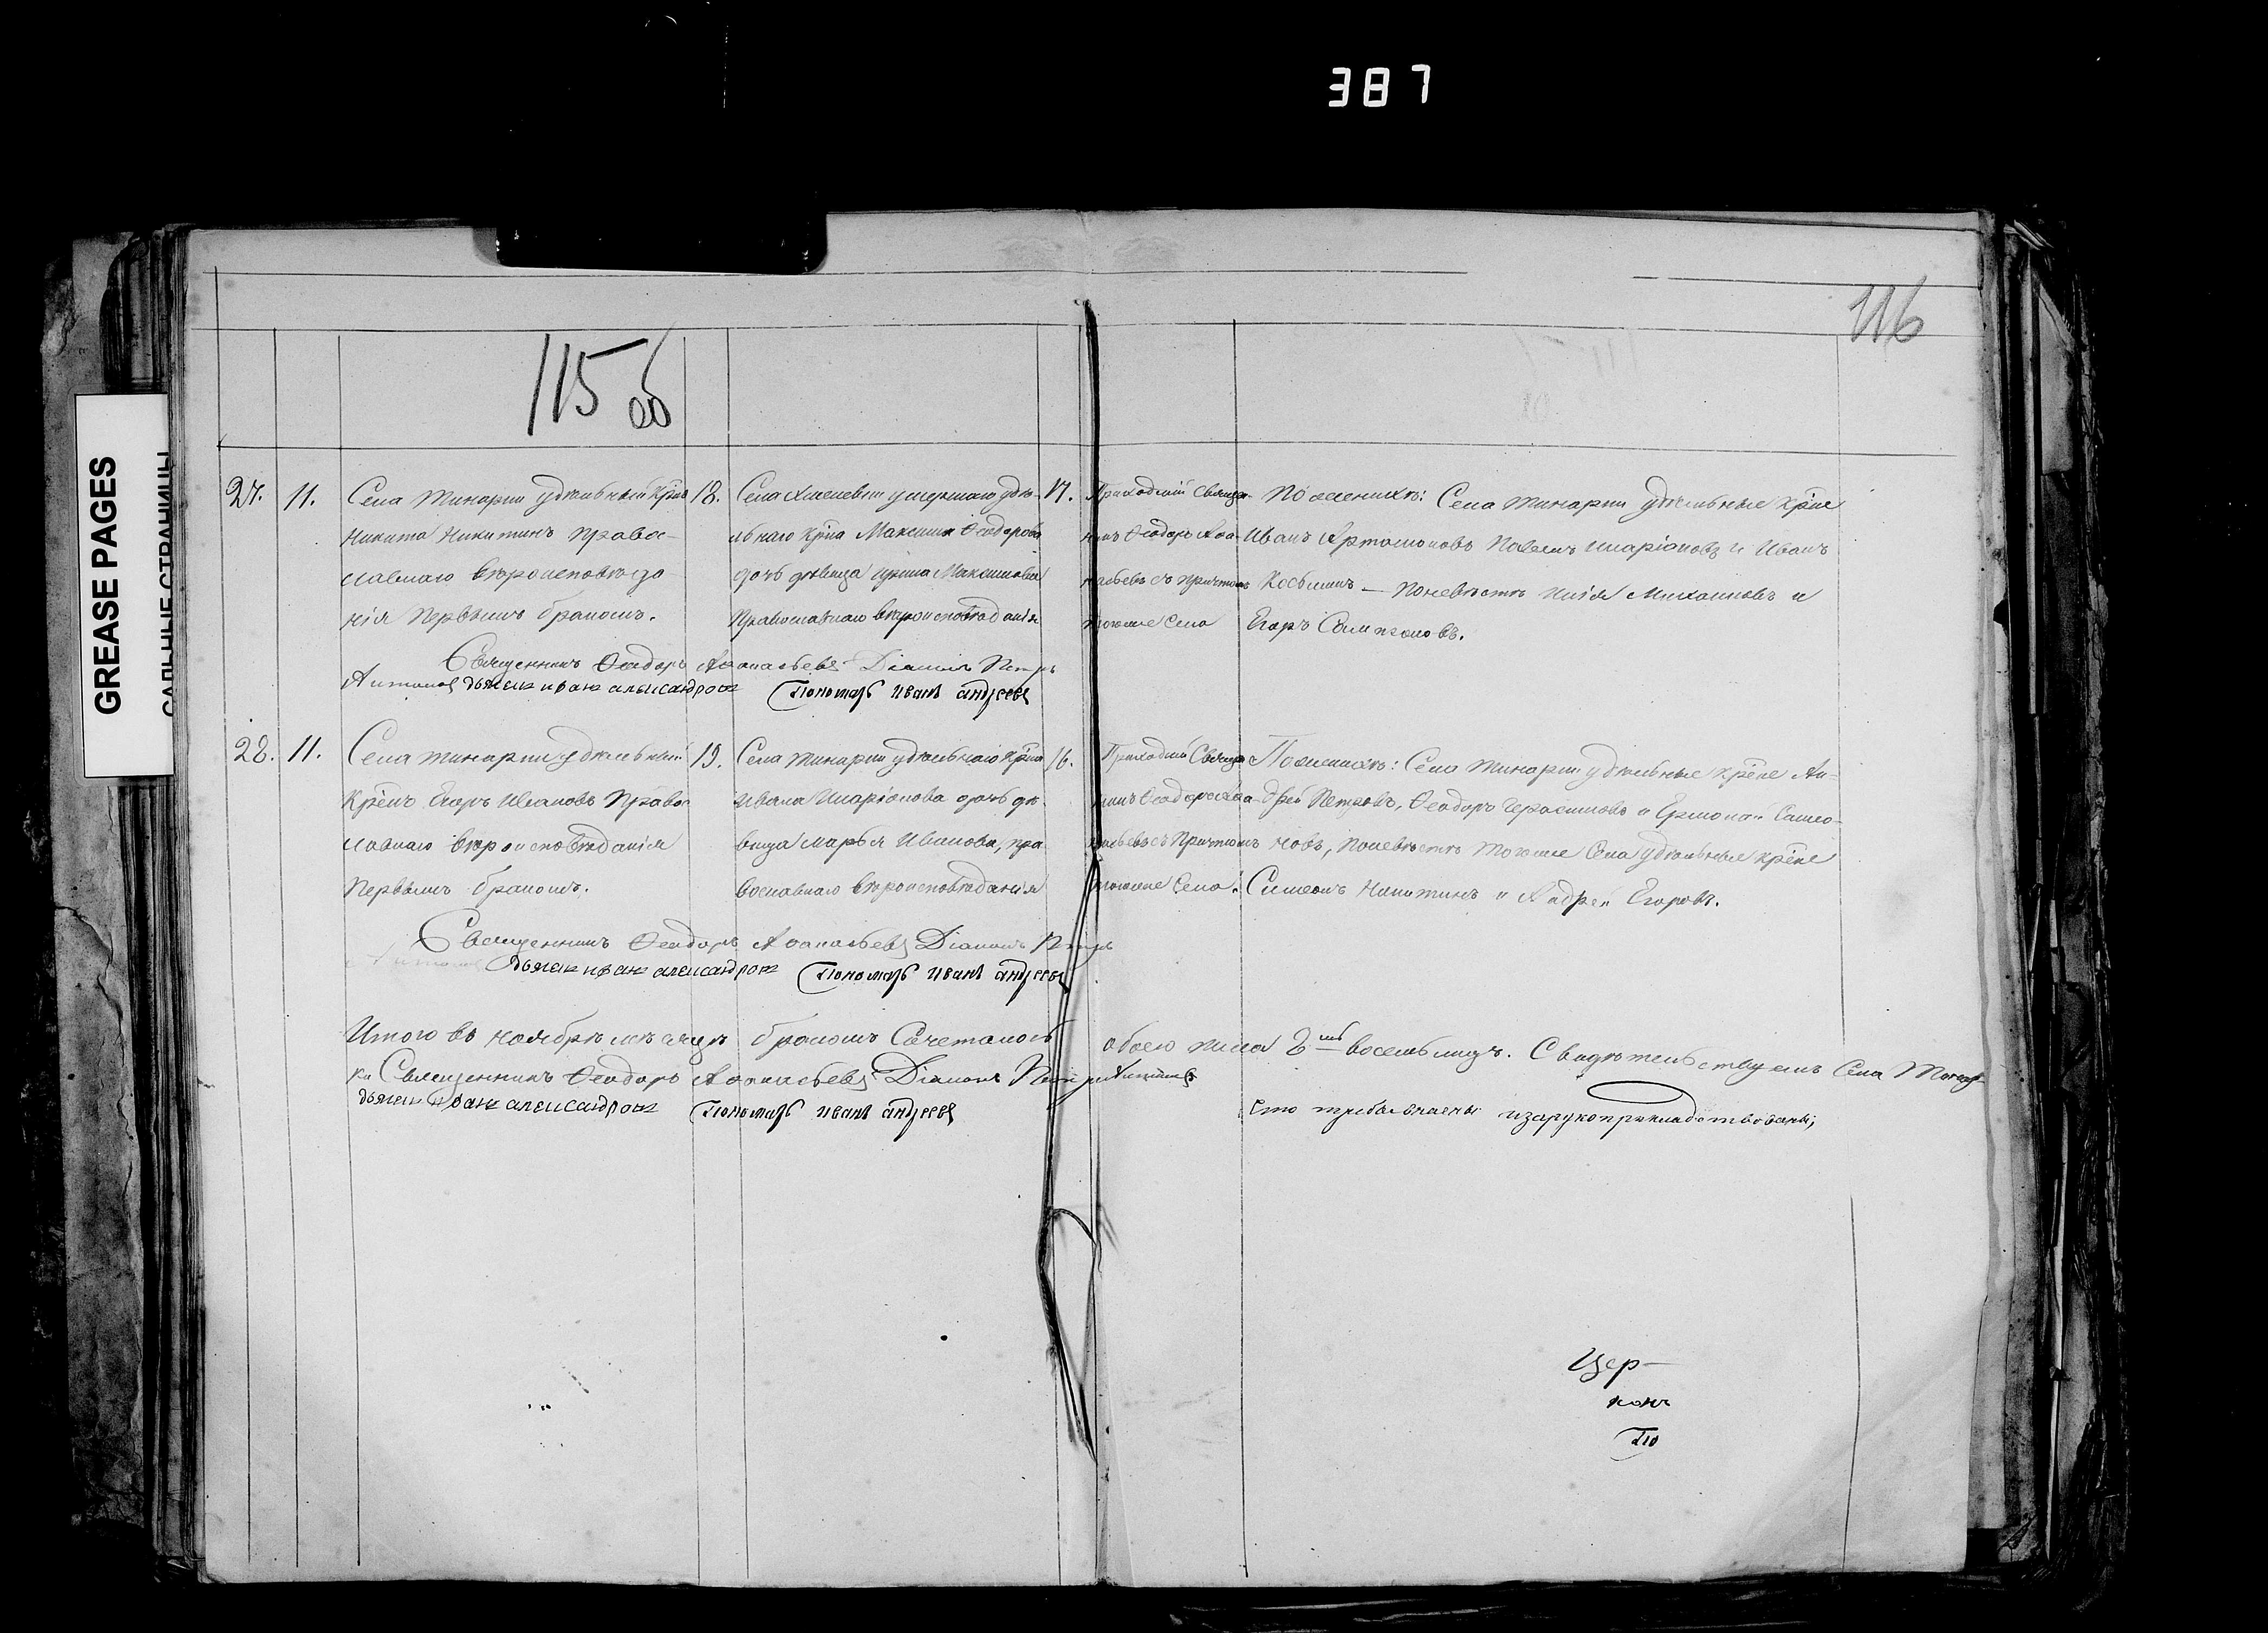 387
GREASE PAGES
САЛЬНЫЕ СТРАНИЦЫ
116
115 об
27. 11. Села Тинарки удѣльный Крѣн
Никита Никитинъ Право-
славнаго вѣроисповѣда
нія первымъ бракомъ.
18. Села умершаго удѣ-
льнаго Крѣна Максима Ѳеодорова
дочь дѣвица Ирина Максимова
Православнаго вѣроисповѣданія
17. Приходскій Священ-
никъ Ѳеодоръ Аѳа-
насьевъ съ Причтомъ
тогоже Села
По женихѣ: Села Тинарки удѣльные Крѣне
Иванъ Артамоновъ Павелъ Иларіоновъ и Иванъ
Косьминъ — По невѣстѣ Илія Михаиловъ и
Егоръ Сампсоновъ.
Священникъ Ѳеодоръ Аѳанасьевъ Діаконъ Петръ
Антоновъ дьячек иван александров Пономарь иванъ андреевъ
28. 11. Села Тинарки удѣльный
Крѣнъ Егоръ Ивановъ Правос
лавнаго вѣроисповѣданія
первымъ бракомъ.
19. Села Тинарки удѣльнаго Крѣна
Ивана Иларіонова дочь дѣ-
вица Марья Иванова, пра
вославнаго вѣроисповѣданія
16. Приходскій Священ
никъ Ѳеодоръ Аѳа-
насьевъ съ Причтомъ
тогоже Села.
По женихѣ: Села Тинарки удѣльные крѣне Ан-
дрей Петровъ, Ѳеодоръ Герасимовъ и Ермолай Самсо-
новъ, по невѣстѣ тогоже Села удѣльные крѣне
Симеонъ Никитинъ и Андрей Егоровъ.
Священникъ Ѳеодоръ Аѳанасьевъ Діаконъ Петръ
Антоновъ дьячек иван александров Пономарь иванъ андреевъ
Итого въ ноябрѣ мѣсяцѣ бракомъ Сочеталось обоего пола 8мь восемь лицъ. Свидѣтельствуемъ Села Тинар-
ки Священникъ Ѳеодоръ Аѳанасьевъ Діаконъ Петръ Антоновъ
дьячек иван александров Пономарь иванъ андреевъ
изарукоприкладствованы;
Цер-
конъ
По